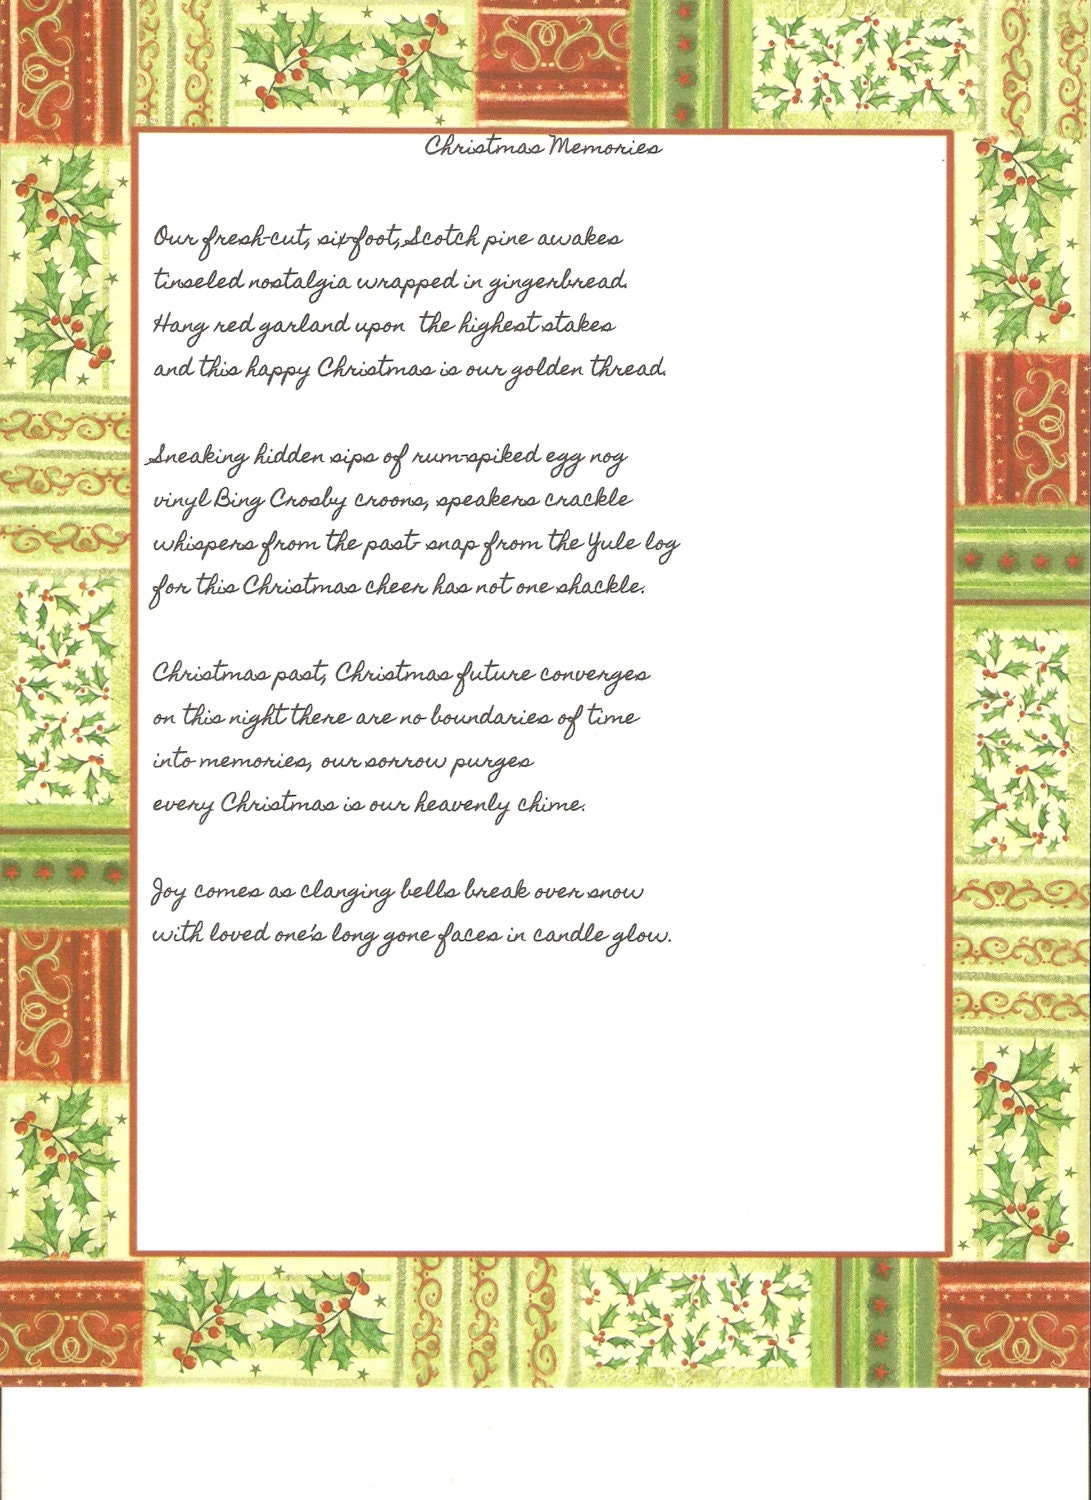 Christmas Memories
Our fresh-cut, six-foot, Scotch pine awakes
tinseled nostalgia wrapped in gingerbread.
Hang red garland upon the highest stakes
and this happy Christmas is our golden thread.
Sneaking hidden sips of rum-spiked egg nog
vinyl Bing Crosby croons, speakers crackle
whispers from the past- snap from the Yule log
for this Christmas cheer has not one shackle.
Christmas past, Christmas future converges
on this night there are no boundaries of time
into memories, our sorrow purges
every Christmas is our heavenly chime.
Joy comes as clanging bells break over snow
with loved one's long gone faces in candle glow.